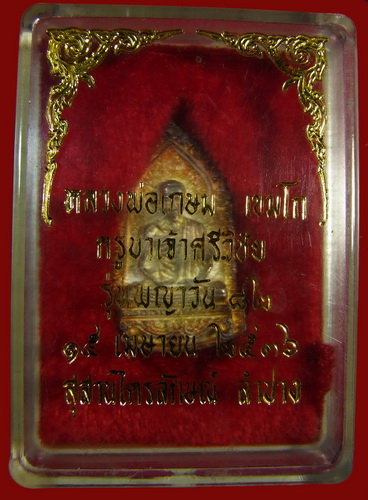 หลวงพ่อเกษม เขมโก
ครูบาเจ้าศรีวิชัย
รุ่นพญาวัน ๘๒
๑๕ เมษายน ๒๕๓๖
สุสานไตรลักษณ์ ลำปาง